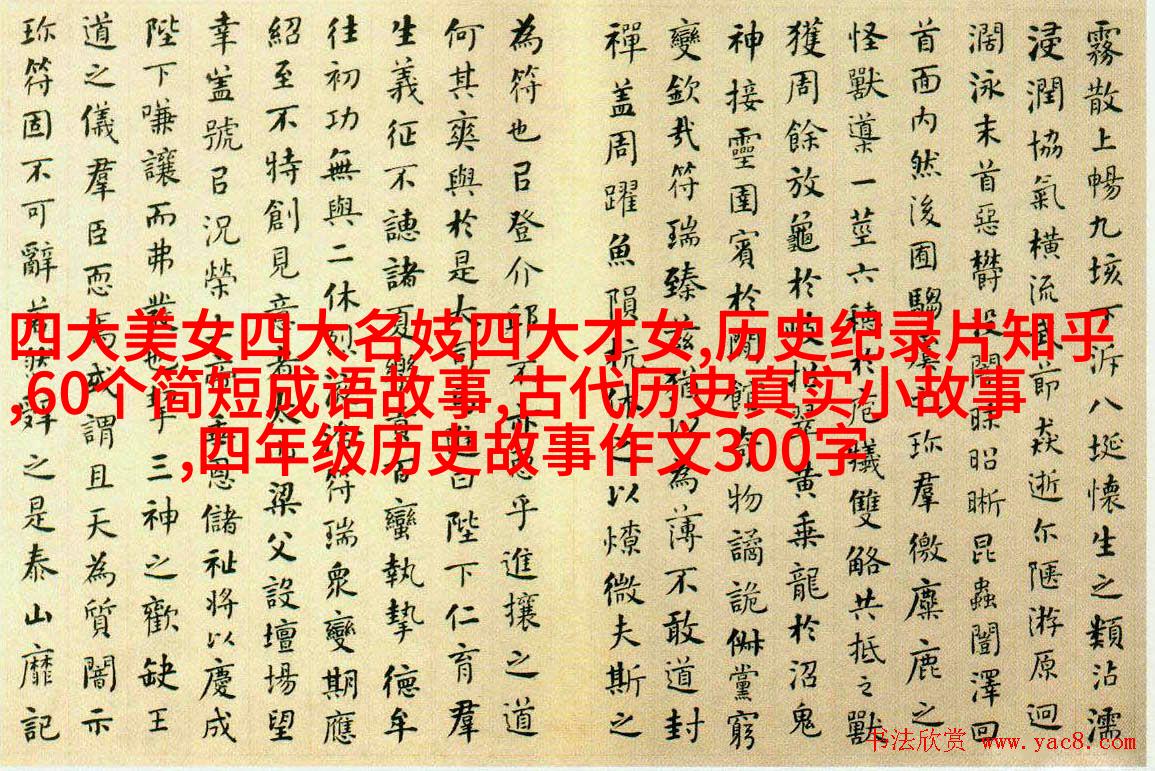 霧散上暢九垓下泝八埏懷生之類沾濡
浸潤協氣橫流武節猋逝尓陿游原迥
闊泳末首惡欝沒闇昧昭晰昆蟲闓澤回
首面内然後囿騶虞之珎羣徼麋鹿之
怪獸導一莖六穗於庖犧雙觡共抵之獸
獲周餘放龜於岐招翠黃乘龍於沼鬼
神接靈圉賓於閒館奇物譎詭俶黨窮
變欽哉符瑞臻茲猶以為薄不敢道封
禪盖周躍魚隕杭休之以燎微夫斯之
為符也㠯登介邱不亦恧乎進攘之道
何其爽與於是大司馬進曰陛下仁育羣
生義征不譓諸夏樂貢百蠻執摯德牟
往初功無與二休烈浹洽符瑞衆變期應
紹至不特創見意者泰山梁父設壇場望
幸盖號㠯況榮上帝垂恩儲祉將以慶成
陛下嗛讓而弗發也挈三神之歡缺王
道之儀羣臣恧焉或謂且天為質闇示
珎符固不可辭若然辭之是泰山靡記
四大美女四大名妓四大才女,历史纪录片知乎
,60个简短成语故事,古代历史真实小故事
,四年级历史故事作文300字
书法欣赏 www.yac8.com